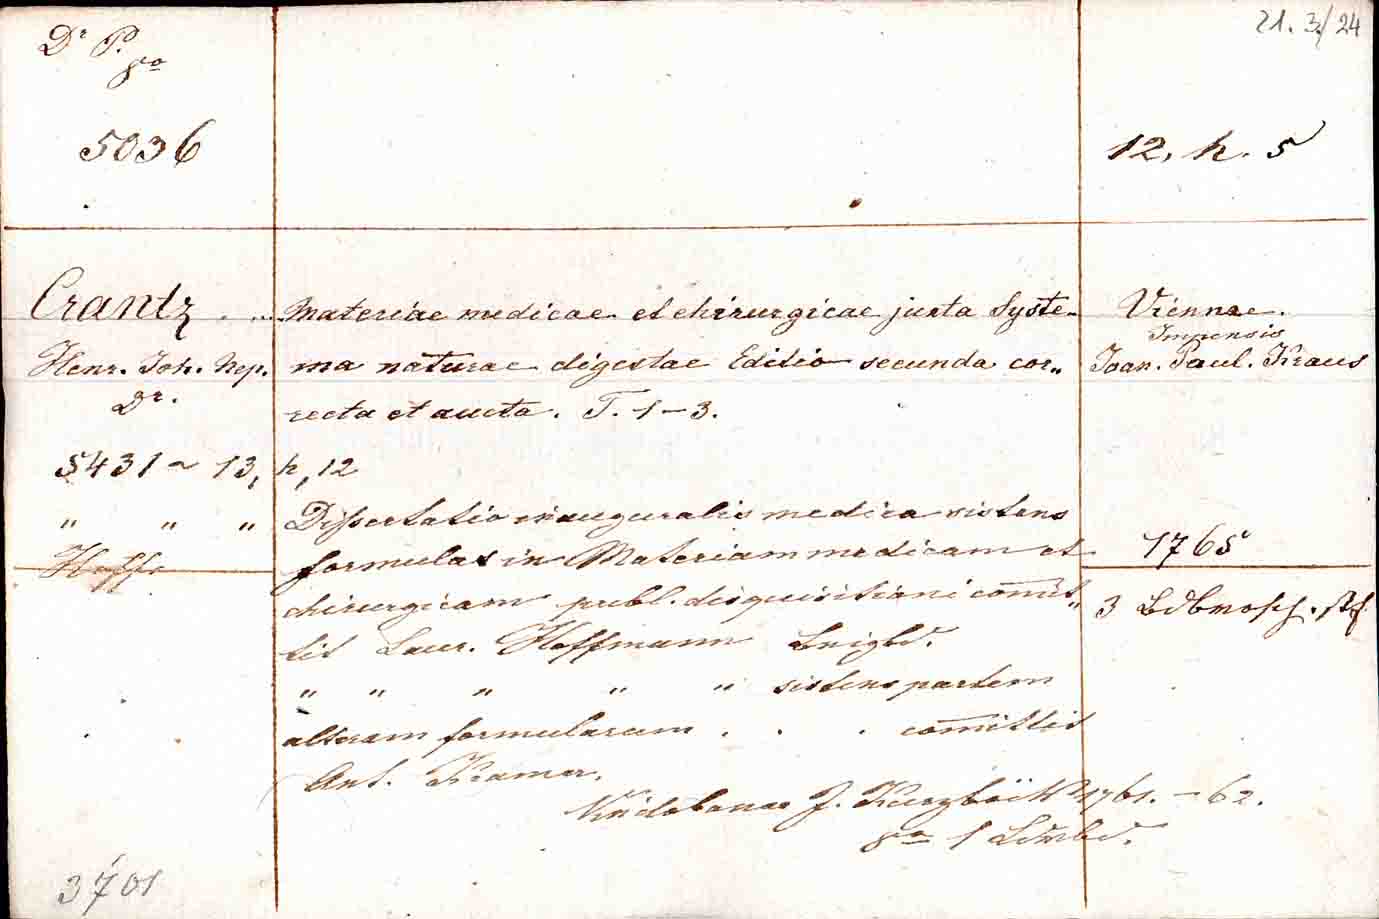 21. 3./24
Dr P.
8o
5036
12. h. 5
Crantz . . . Materiae medicae et chirurgicae juxta Syste-
Viennae.
Impensis
Henr. Joh. Nep. ma naturae digestae Editio secunda cor„
Joan. Paul. Kraus
Dr.
recta et aucta. T. 1-3.
5431 ~ 13, h, 12
" " " Dissertatio inauguralis medica sistens
Hoffm
formulas in Materiam medicam et
1765
chirurgicam publ. disquisitioni comit„
3
tit Laur. Hoffmann
" " " " " sistens partem
alteram formularum . . . comittit
Ant. Kramer.
Vindobonae J. Kurzböck 1761. - 62.
8o 1
3701